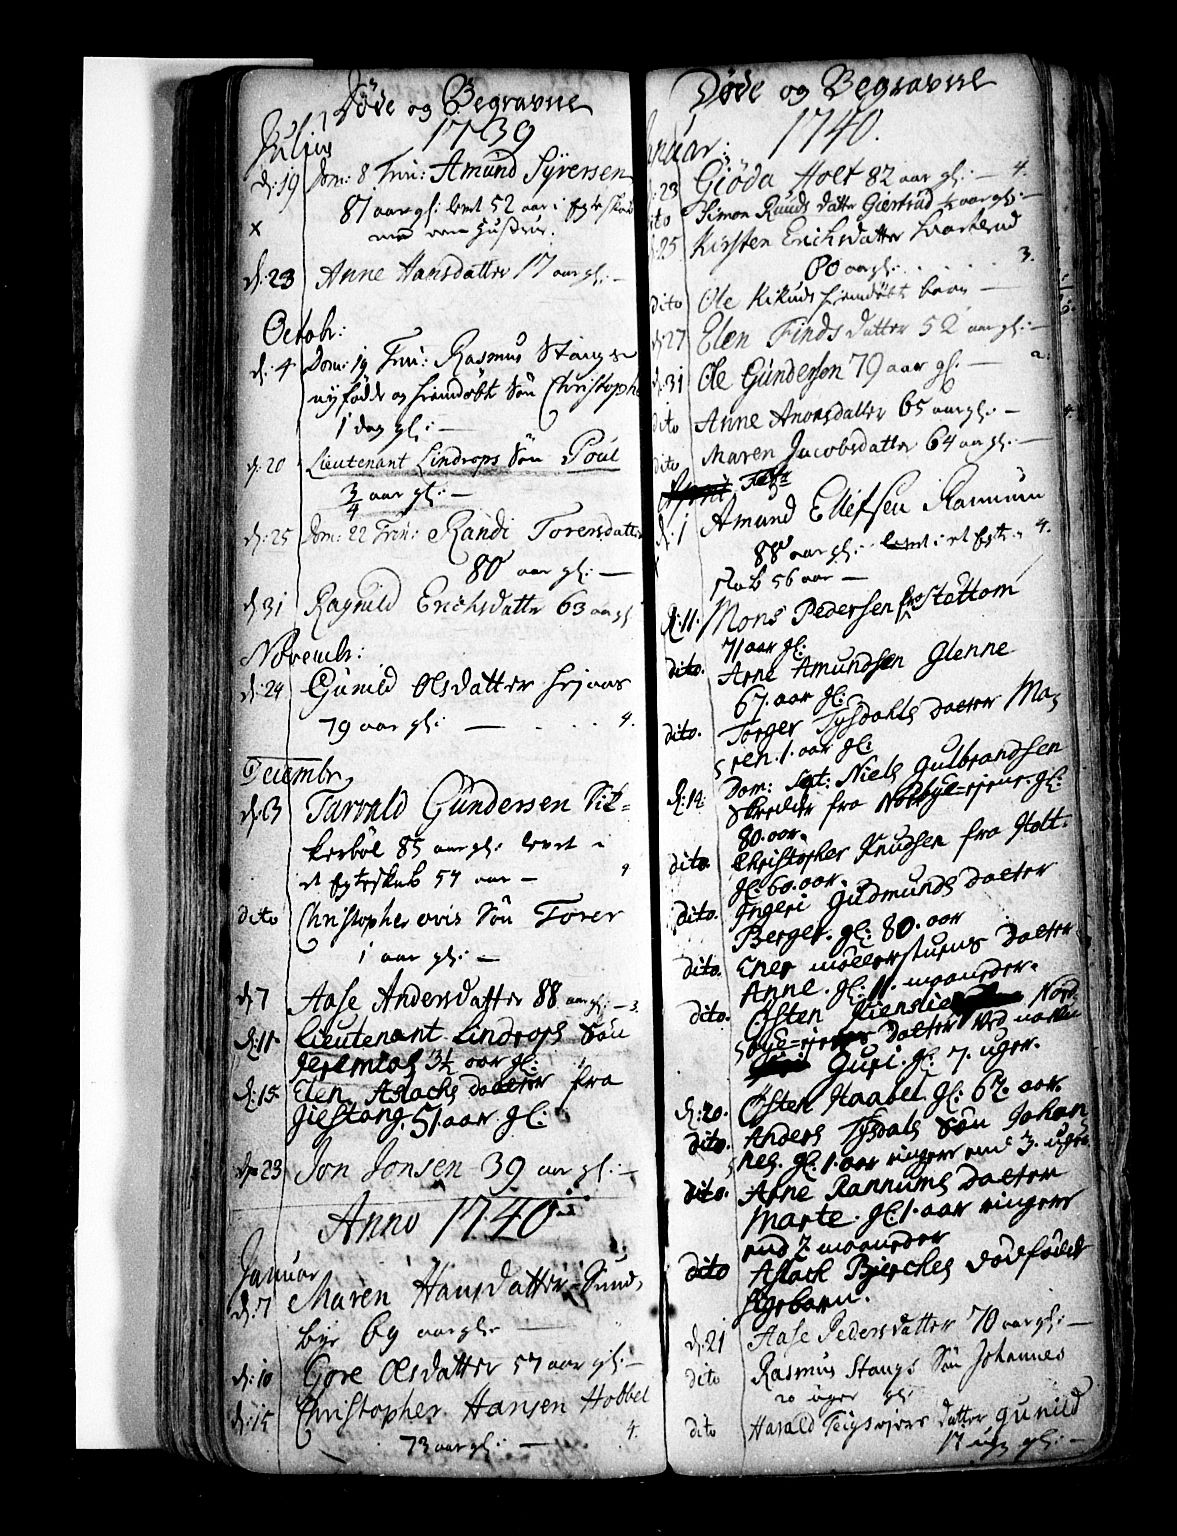 Døde og Begravne
1739
Julius
d: 19 Dom: 8 Trin: Amund Syversen
87 aar gl: levet 52 aar i Egteskab
x med een Hustrue.
d: 23 Anne Hansdatter 17 aar gl: —
Octobr:
d: 4 Dom: 19 Trin: Rasmus Stangs
nyfødde og hiemdøbt Søn Christopher
1 dag gl: —
d: 20 Lieutenant Lindrops Søn Poul
3/4 aar gl: —
d: 25 Dom: 22 Trin: Randi Toresdatter
80 aar gl: —
d: 31 Ragnild Erichsdatter 63 aar gl
Novembr:
d: 24 Gunild Olsdatter
79 aar gl: — 4.
Decembr,
d: 3 Tarvald Gundersen Sit-
kerbøl 85 aar gl: levet i
et Egteskab 54 aar —
dito Christopher ovis Søn Torer
1 aar gl: —
d: 7 Aase Andersdatter 88 aar gl: — 3
d: 11. Lieutenant Lindrops Søn
Jeremias 3½ aar gl:
d: 15. Elen Aslachs daatter fra
Giestang. 51 aar gl:
d: 23 Jon Jonsen 39 aar gl: —
Anno 1740
Januar
d: 7 Maren Hansdatter Sund-
bye 69 aar gl: —
d: 10 Gore Olsdatter 57 aar gl: —
d: 15 Christopher Hansen Hobbel
73 aar gl: — 4.
Døde og Begravne
1740.
Januar:
d: 23 Giøda Holt 82 aar gl: — 4.
dito Simon Ruuds datter Giertrud aar gl: —
d: 25 Kirsten Erichsdatter
80 aar gl: 3.
dito Ole Kikuds hiemdøbt barn —
d: 27 Elen Findsdatter 52 aar gl: —
d: 31 Ole Gunderson 79 aar gl: — 2.
dito Anne Anonsdatter 65 aar gl: —
dito Maren Jacobsdatter 64 aar gl: —
Febr
d: 1 Amund Ellefsen Rannum
88 aar gl: levet i et Egte- 4.
skab 56 aar —
d: 11. Mons Pedersen fra Stettom
71 aar gl.
dito. Arne Amundsen Glenne
67. aar gl:
dito. Torger Tysdahls daatter Ma-
ren. 1. aar gl:
d: 14. Dom: Sept: Niels Gulbrandsen
Skredder fra Norbye-ejeur. gl:
80. aar.
dito. Christopher Knudsen fra Holt.
gl: 60. aar.
dito. Ingeri Gudmunds daatter
Berger. gl: 80. aar
dito. Ener møllerstuens daatter
Anne. gl: 11. maaneder.
dito. Østen Nord-
bye-ejers daatter ved navn
Guri gl: 7. uger.
d: 20. Østen Haabel gl: 67. aar.
dito. Anders Tysdals Søn Johan
nes. gl: 1. aar ringere end 3. uger
dito. Arne Rannums daatter
Marte. gl: 1. aar ringere
end 2. maaneder
dito Aslack Bierckes dødfødde
pigebarn.
d: 21 Aase Pedersdatter 70 aar gl: —
dito Rasmus Stangs Søn Johannes
20 uger gl:
dito Harald Teigs ejers datter Gunild
17 ug: gl: —